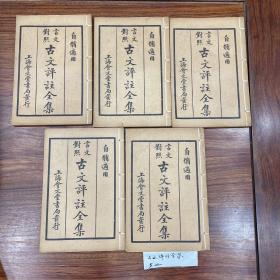 自脩適用
言文對照
古文評註全集
上海會文堂書局發行
自脩適用
言文對照
古文評註全集
上海會文堂書局發行
自脩適用
言文對照
古文評註全集
上海會文堂書局發行
自脩適用
言文對照
古文評註全集
上海會文堂書局發行
自脩適用
言文對照
古文評註全集
上海會文堂書局發行